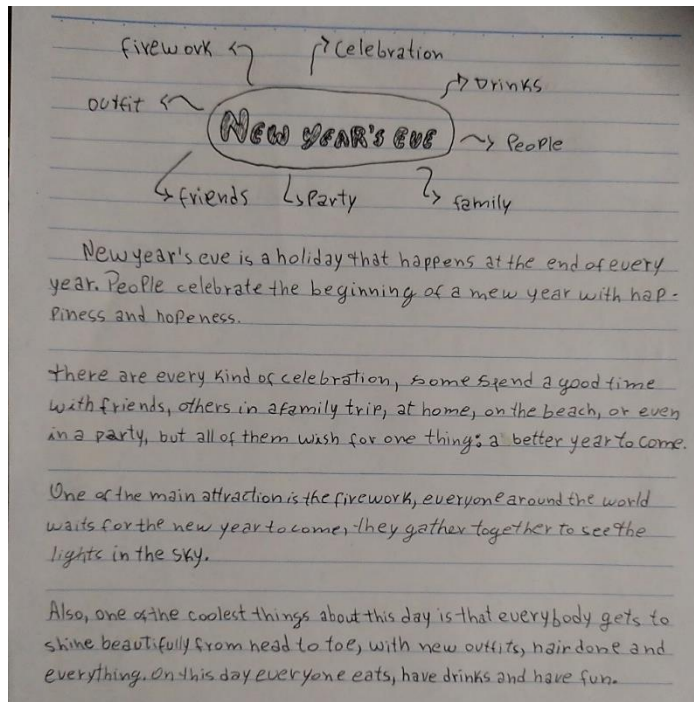 firework
Celebration
Drinks
outfit
NEW YEAR'S EVE
People
friends
Party
family
New year's eve is a holiday that happens at the end of every
year. People celebrate the beginning of a mew year with hap-
piness and hopeness.
there are every kind of celebration, some spend a good time
with friends, others in a family trip, at home, on the beach, or even
in a party, but all of them wish for one thing: a better year to come.
One of the main attraction is the firework, everyone around the world
waits for the new year to come, they gather together to see the
lights in the sky.
Also, one of the coolest things about this day is that everybody gets to
shine beautifully from head to toe, with new outfits, hair done and
everything. On this day everyone eats, have drinks and have fun.